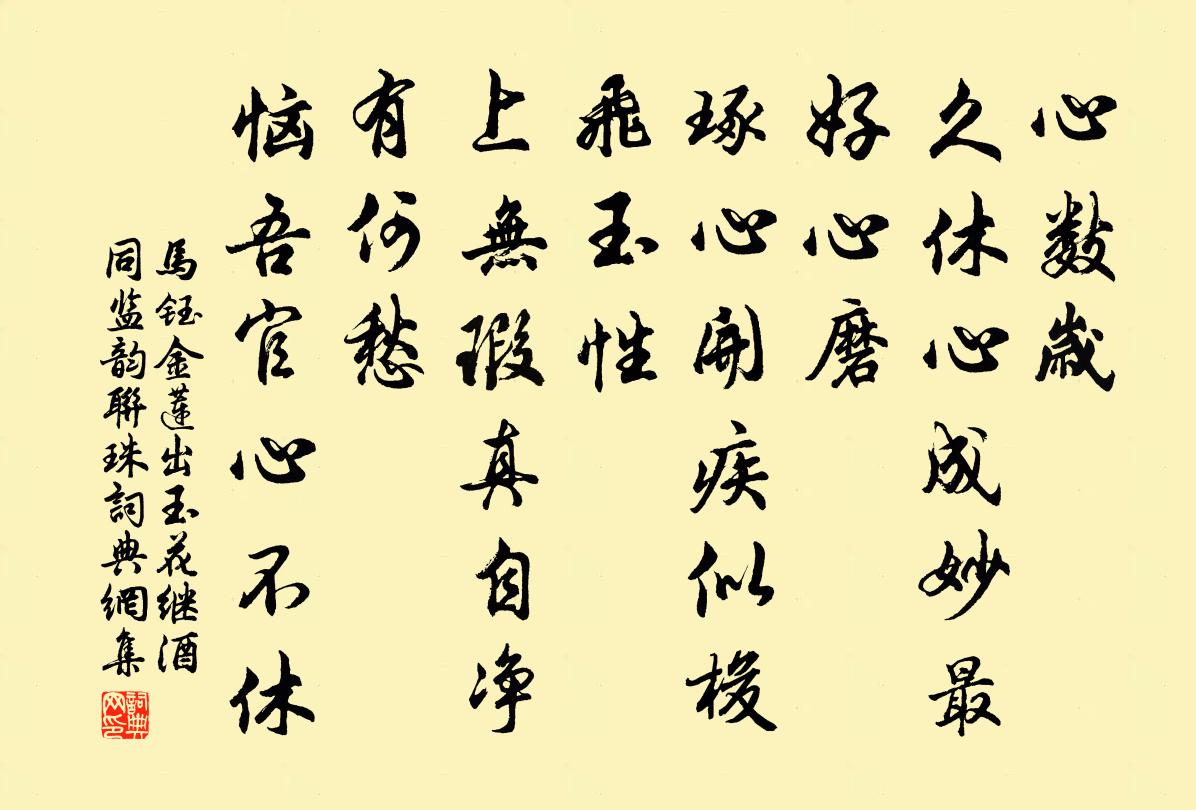 心数歲
久休心成妙最
好心磨
琢心開疾似梭
飛玉性
上無瑕真自净
有何愁
恼吾官心不休
馬鈺金蓮出玉花继酒
同监韵聯珠詞典網集
詞典网印